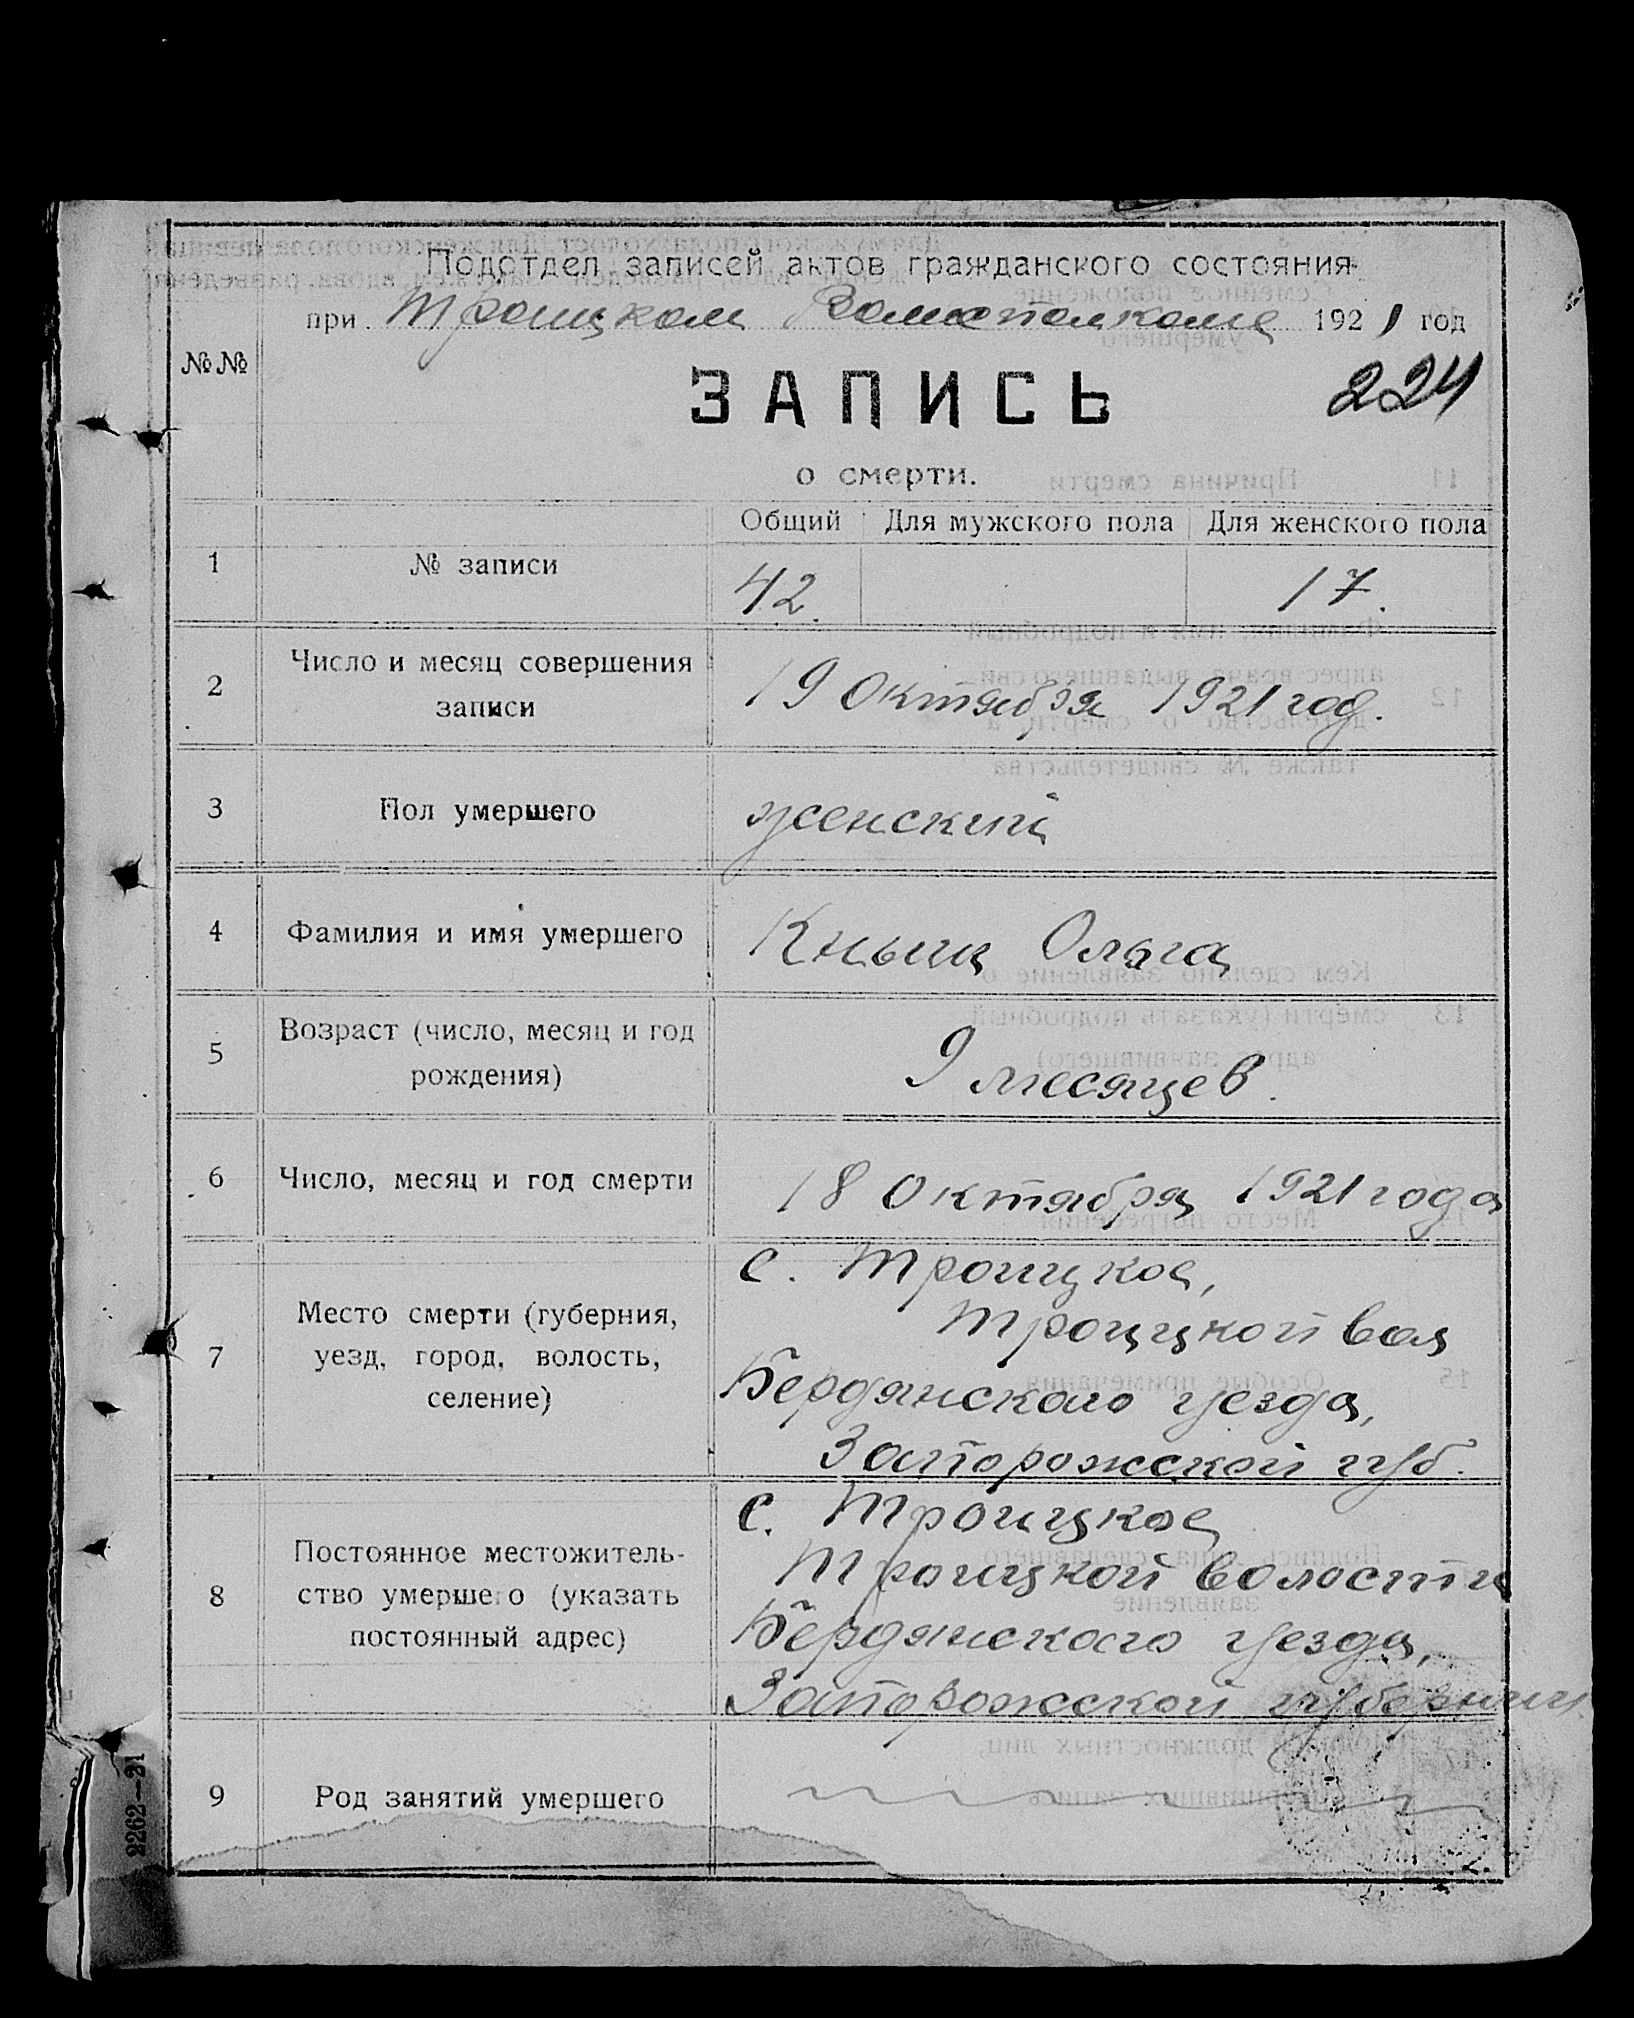 Подотдел записей актов гражданского состояния
при Троицком Волисполкоме 1921 год
№№
ЗАПИСЬ
224
о смерти.
Общий Для мужского пола Для женского пола
1 № записи 42. 17.
2 Число и месяц совершения записи 19 Октября 1921 год.
3 Пол умершего женский
4 Фамилия и имя умершего Кныш Ольга
5 Возраст (число, месяц и год рождения) 9 месяцев.
6 Число, месяц и год смерти 18 Октября 1921 года
7 Место смерти (губерния, уезд, город, волость, селение)
с. Троицкое,
Троицкой вол
Бердянского уезда,
Запорожской губ.
8 Постоянное местожитель-
ство умершего (указать
постоянный адрес)
с. Троицкое
Троицкой волости
Бердянского уезда,
Запорожской губернии
9 Род занятий умершего
2262—21